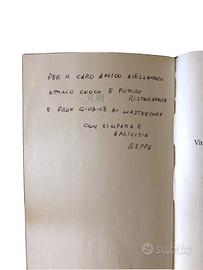 PER IL CARO AMICO ALESSANDRO
OTTIMO CUOCO E FUTURO
RISTORATORE
E PROX GIUDICE DI MASTERCHEF
CON SIMPATIA E
AMICIZIA
BEPPE
Vi
subito